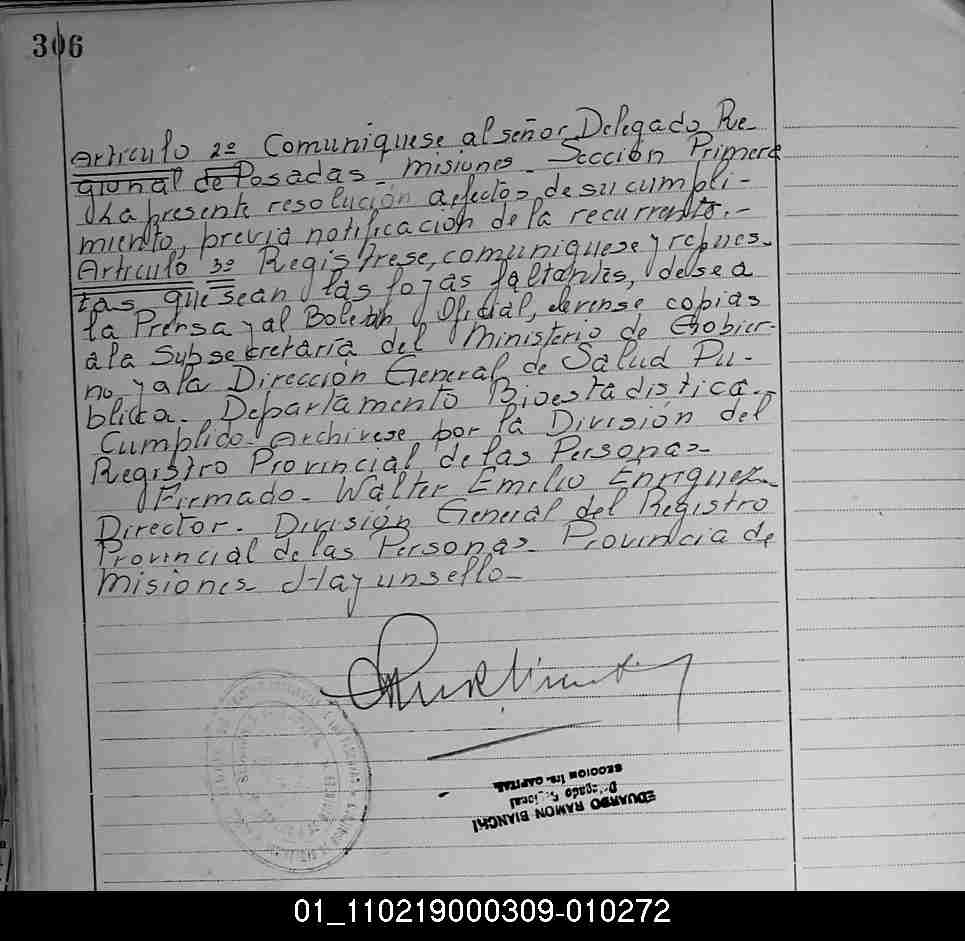 306
Articulo 2º Comuniquese al señor Delegado Re-
gional de Posadas - Misiones - Sección Primera
la presente resolución a efectos de su cumpli-
miento, previa notificación de la recurrente.-
Articulo 3º Registrese, comuniquese y repues-
tas que sean las fojas faltantes, dese a
la Prensa y al Boletin Oficial, elevense copias
a la Subsecretaría del Ministerio de Gobier-
no y a la Dirección General de Salud Pu-
blica. Departamento Bioestadistica.-
Cumplido. Archivese por la División del
Registro Provincial de las Personas-
Firmado - Walter Emilio Enriquez-
Director - División General del Registro
Provincial de las Personas - Provincia de
Misiones - Hay un sello-
EDUARDO RAMON BIANCHI
Delegado Regional
SECCION 1ra. CAPITAL
01_110219000309-010272